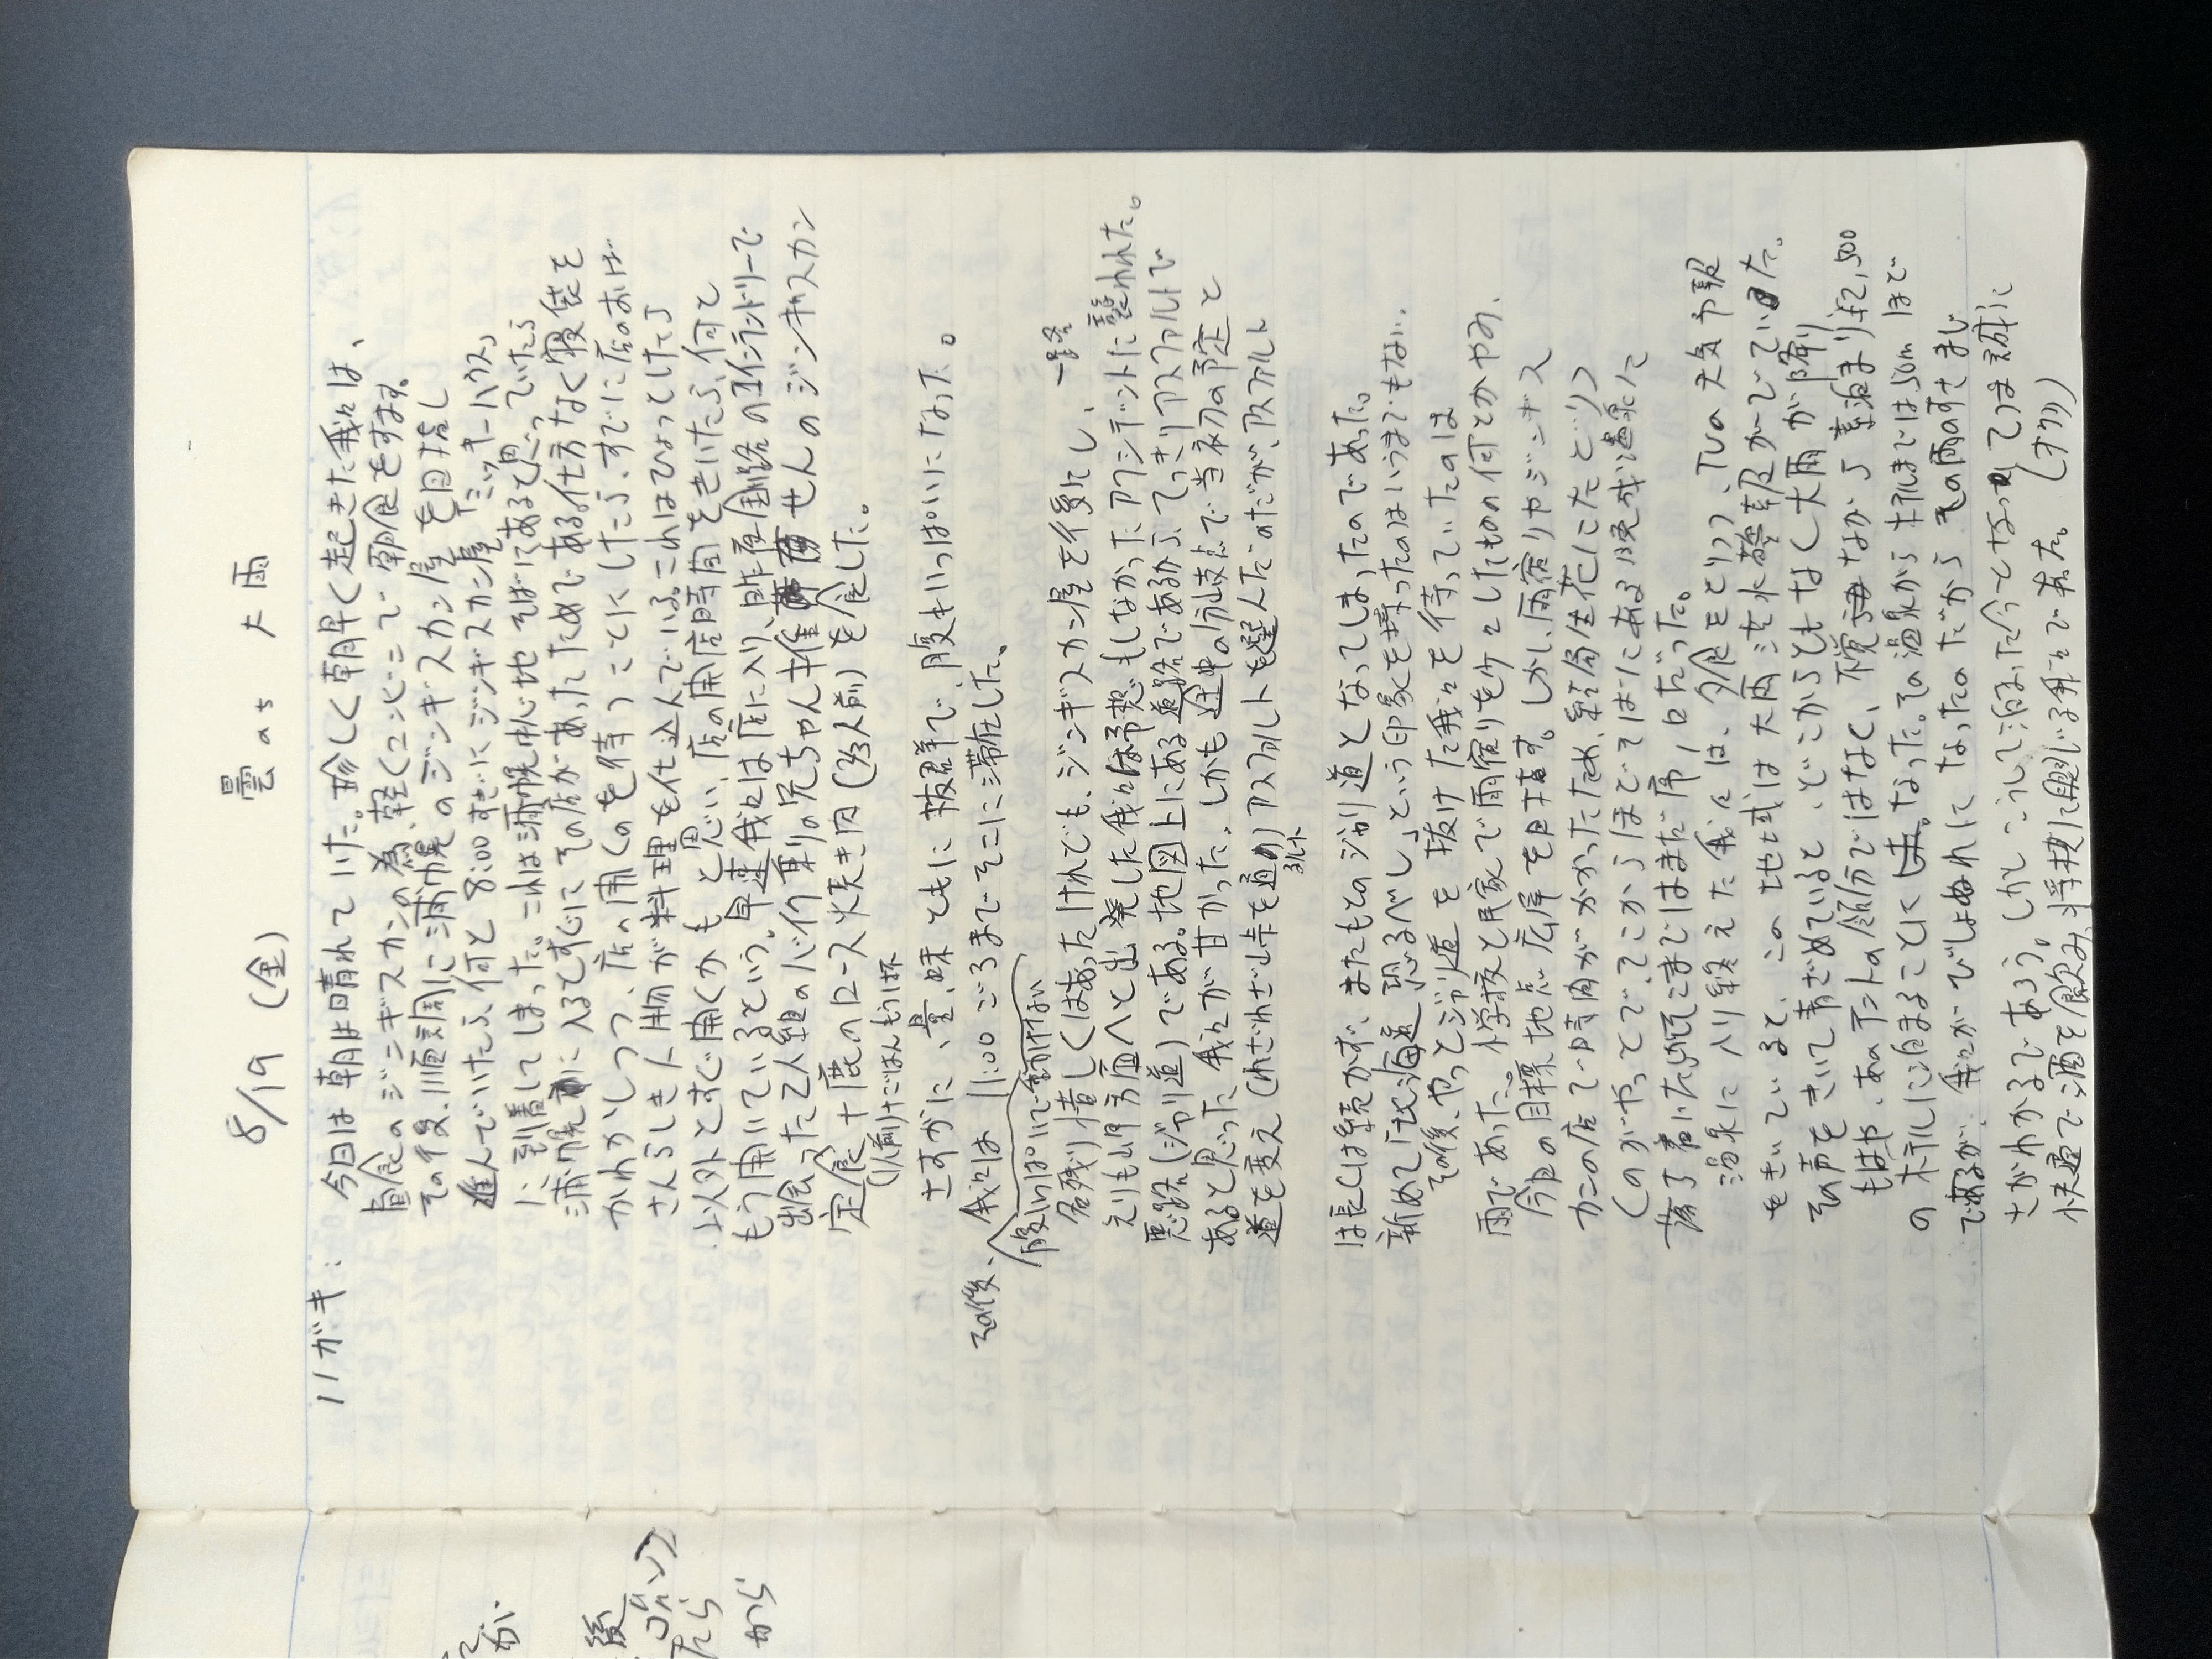 8/19 (金) 曇のち大雨
ハガキ： 今日は朝は晴れていた。珍しく朝早く起きた我々は、
昼食のジンギスカンの為、軽くコンビニで朝食をすます。
その後、川面気周に満幌のジンギスカン屋を目指し
進んでいたら、何と8:00すぎにジンギスカン屋「ミッキーハウス」
に到着してしまった。これは満幌中心地そばにあると思っていたら
満幌に入るとすぐにその店があったためである。仕方なく寝袋を
かわかしつつ、店の開くのを待つことにしたら、すでに店のおば
さんらしき人物が料理を仕込んでいる。これはひょっとしたら
以外とすぐ開くかもと思い、店の開店時間をきいたら、何と
もう開いているという。早速我々は店に入り、昨夜釧路のコインランドリーで
出会った2人組のバイク乗りの兄ちゃん推せんのジンギスカン
定食+鹿のロース焼き肉(2/3人前)を食した。
(1人前)+ごはんもう1杯
さすがに、量、味ともに抜群で、腹もいっぱいになった。
その後、我々は11:00ごろまでそこに滞在した。
腹いっぱいで動けない
名残り惜しくはあったけれども、ジンギスカン屋を後にし、一路
えりも岬方面へと出発した我々は予想もしなかったアクシデントに襲われた。
悪路(ジャリ道)である。地図上にある道路であるから、てっきりアスファルトで
あると思った我々が甘かった。しかも途中の分岐点で当初の予定と
道を変え(わざわざ峠を通る)アスファルトを選んだのだが、アスファルト
ルート
は長くは続かず、またもとのジャリ道となってしまったのであった。
新めて「北海道恐るべし」という印象を持ったのはいうまでもない。
その後、やっとジャリ道を抜けた我々を待っていたのは
雨であった。小学校と民家で雨宿りを少々したものの何とかやみ、
今日の目標地点広尾を目指す。しかし、雨宿りやジンギス
カンの店で時間がかかったため、結局佐花にたどりつ
くのがやっとで、そこからほどではにある晩成温泉に
落ち着いた頃にはまだ席1口だった。
温泉に入り終えた我々は、夕食をとりつつ、TVの天気予報
をきいていると、この地域は大雨洪水警報がでていた。
その声をきいて青ざめていると、どこからともなく大雨が降り
もはや、あのテントの領分ではなく、不覚ながら素泊まり¥2,500
のホテルに泊まることになった。その温泉からホテルまでは50mほどで
であるが、我々がびしょぬれになったのだからその雨のすさまじ
さがわかるであろう。しかしこうして泊まった今となっては誠に
快適で酒を飲み、将棋に興じる我々であった。(オワリ)
後
から